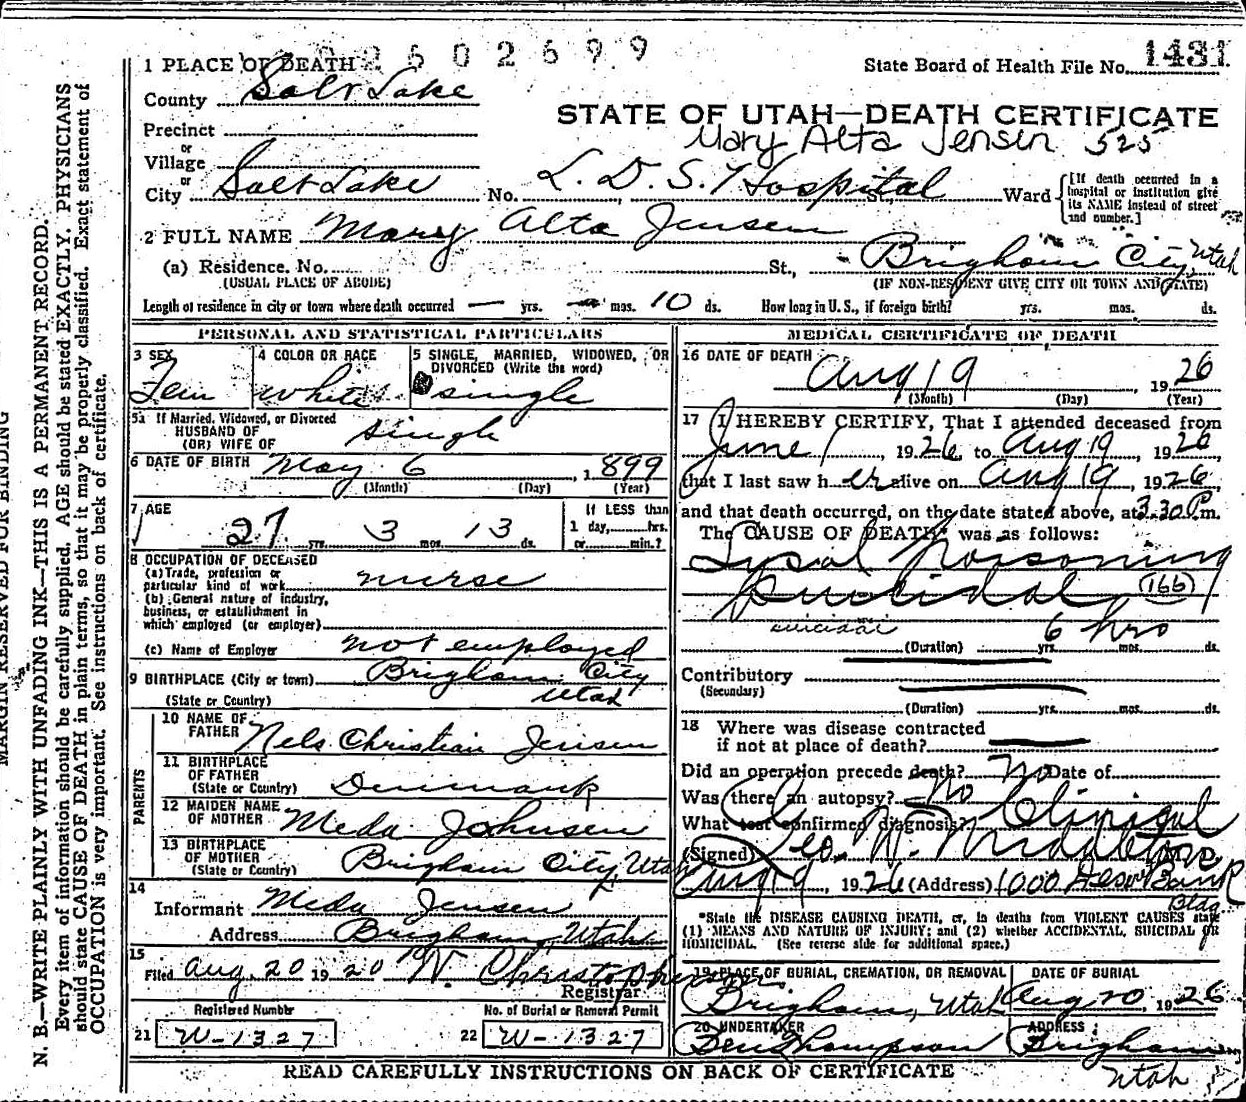 2602699
1 PLACE OF DEATH
State Board of Health File No. 1431
County Salt Lake
STATE OF UTAH—DEATH CERTIFICATE
Precinct
Mary Alta Jensen 525
or
Village
or
City Salt Lake No. L. D. S. Hospital St., Ward
[If death occurred in a
hospital or institution give
its NAME instead of street
and number.]
2 FULL NAME Mary Alta Jensen
(a) Residence. No. St., Brigham City, Utah
(USUAL PLACE OF ABODE) (IF NON-RESIDENT GIVE CITY OR TOWN AND STATE)
Length of residence in city or town where death occurred — yrs. — mos. 10 ds. How long in U. S., if foreign birth? yrs. mos. ds.
PERSONAL AND STATISTICAL PARTICULARS
3 SEX 4 COLOR OR RACE 5 SINGLE, MARRIED, WIDOWED, OR
DIVORCED (Write the word)
Fem white single
5a If Married, Widowed, or Divorced
HUSBAND OF
(OR) WIFE OF single
6 DATE OF BIRTH May 6, 1899
(Month) (Day) (Year)
7 AGE If LESS than
1 day, hrs.
27 yrs. 3 mos. 13 ds. or min.?
8 OCCUPATION OF DECEASED
(a) Trade, profession or
particular kind of work nurse
(b) General nature of industry,
business, or establishment in
which employed (or employer)
(c) Name of Employer not employed
9 BIRTHPLACE (City or town) Brigham City
(State or Country) Utah
PARENTS
10 NAME OF
FATHER Nels Christian Jensen
11 BIRTHPLACE
OF FATHER
(State or Country) Denmark
12 MAIDEN NAME
OF MOTHER Meda Johnsen
13 BIRTHPLACE
OF MOTHER
(State or Country) Brigham City, Utah
14
Informant Meda Jensen
Address Brigham, Utah
15
Filed Aug. 20 1920 W. Christophersen
Registrar
Registered Number No. of Burial or Removal Permit
21 W-1327 22 W-1327
MEDICAL CERTIFICATE OF DEATH
16 DATE OF DEATH
Aug 19, 1926
(Month) (Day) (Year)
17 I HEREBY CERTIFY, That I attended deceased from
June 1, 1926, to Aug 19, 1926,
that I last saw h er alive on Aug 19, 1926,
and that death occurred, on the date stated above, at 3.30 P.m.
The CAUSE OF DEATH* was as follows:
Lysol Poisoning
Suicidal (166)
suicidal 6 hrs
(Duration) yrs. mos. ds.
Contributory
(Secondary)
(Duration) yrs. mos. ds.
18 Where was disease contracted
if not at place of death?
Did an operation precede death? No Date of
Was there an autopsy? No
What test confirmed diagnosis? Clinical
(Signed) Geo. W. Middleton
Aug 19, 1926 (Address) 1000 Deseret Bank
Bldg
*State the DISEASE CAUSING DEATH, or, in deaths from VIOLENT CAUSES state
(1) MEANS AND NATURE OF INJURY; and (2) whether ACCIDENTAL, SUICIDAL or
HOMICIDAL. (See reverse side for additional space.)
19 PLACE OF BURIAL, CREMATION, OR REMOVAL DATE OF BURIAL
Brigham, Utah Aug 20, 1926
20 UNDERTAKER ADDRESS
Ben Thompson Brigham
Utah
READ CAREFULLY INSTRUCTIONS ON BACK OF CERTIFICATE
MARGIN RESERVED FOR BINDING
N. B.—WRITE PLAINLY WITH UNFADING INK—THIS IS A PERMANENT RECORD.
Every item of information should be carefully supplied. AGE should be stated EXACTLY. PHYSICIANS
should state CAUSE OF DEATH in plain terms, so that it may be properly classified. Exact statement of
OCCUPATION is very important. See instructions on back of certificate.